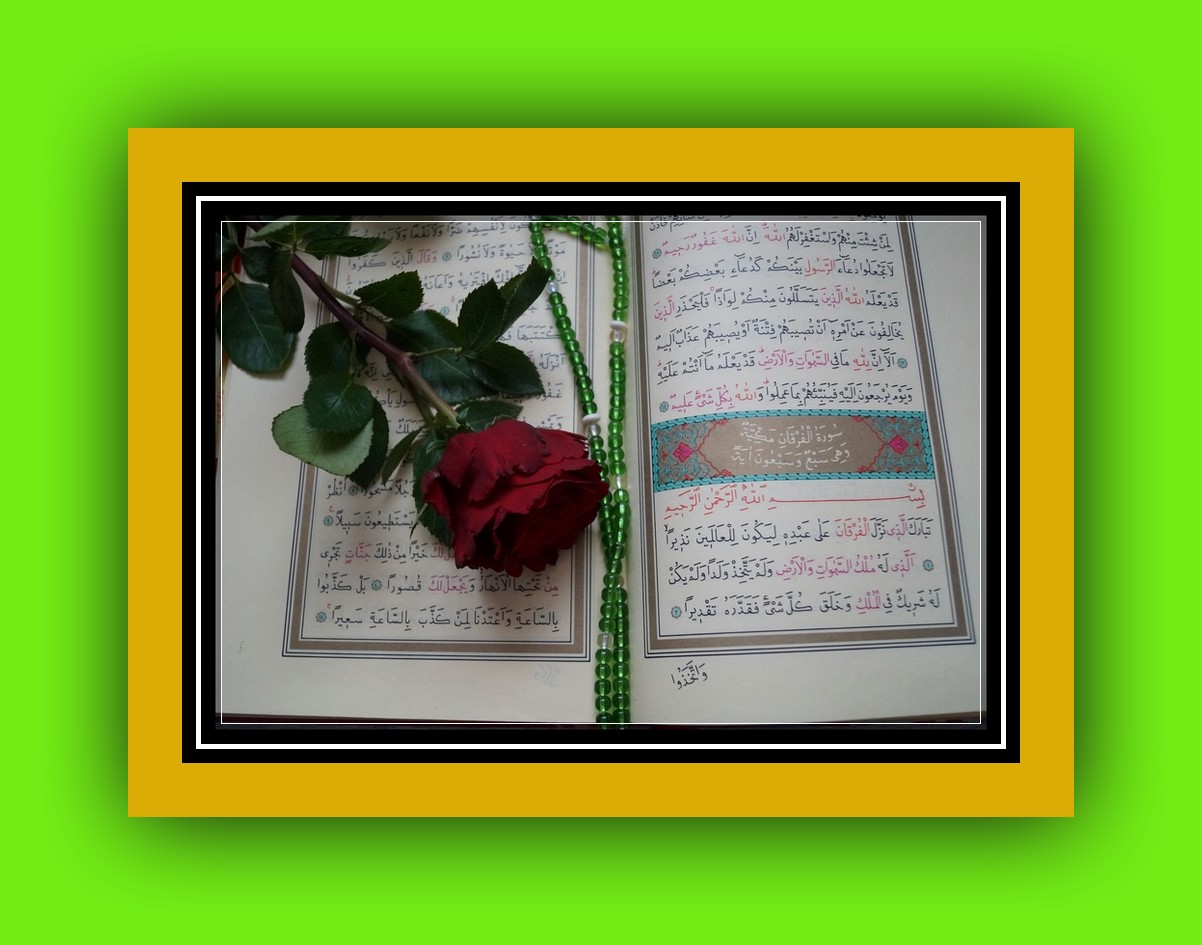 لِمَنْ شِئْتَ مِنْهُمْ وَاسْتَغْفِرْ لَهُمُ اللّٰهَ اِنَّ اللّٰهَ غَفُورٌ رَحِيمٌ
لَا تَجْعَلُوا دُعَاءَ الرَّسُولِ بَيْنَكُمْ كَدُعَاءِ بَعْضِكُمْ بَعْضًا
قَدْ يَعْلَمُ اللّٰهُ الَّذِينَ يَتَسَلَّلُونَ مِنْكُمْ لِوَاذًا فَلْيَحْذَرِ الَّذِينَ
يُخَالِفُونَ عَنْ اَمْرِهِ اَنْ تُصِيبَهُمْ فِتْنَةٌ اَوْ يُصِيبَهُمْ عَذَابٌ اَلِيمٌ
اَلَا اِنَّ لِلّٰهِ مَا فِى السَّمٰوَاتِ وَالْاَرْضِ قَدْ يَعْلَمُ مَا اَنْتُمْ عَلَيْهِ
وَيَوْمَ يُرْجَعُونَ اِلَيْهِ فَيُنَبِّئُهُمْ بِمَا عَمِلُوا وَاللّٰهُ بِكُلِّ شَىْءٍ عَلِيمٌ
سُورَةُ الْفُرْقَانِ مَكِّيَّةٌ
وَهِىَ سَبْعٌ وَسَبْعُونَ اٰيَةً
بِسْمِ اللّٰهِ الرَّحْمٰنِ الرَّحِيمِ
تَبَارَكَ الَّذِى نَزَّلَ الْفُرْقَانَ عَلٰى عَبْدِهِ لِيَكُونَ لِلْعَالَمِينَ نَذِيرًا
اَلَّذِى لَهُ مُلْكُ السَّمٰوَاتِ وَالْاَرْضِ وَلَمْ يَتَّخِذْ وَلَدًا وَلَمْ يَكُنْ
لَهُ شَرِيكٌ فِى الْمُلْكِ وَخَلَقَ كُلَّ شَىْءٍ فَقَدَّرَهُ تَقْدِيرًا
وَاتَّخَذُوا
لِاَنْفُسِهِمْ ضَرًّا وَلَا نَفْعًا وَلَا
مَوْتًا وَلَا حَيٰوةً وَلَا نُشُورًا وَقَالَ الَّذِينَ كَفَرُوا
افْتَرٰيهُ وَاَعَانَهُ
اكْتَتَبَهَا
اَنْزَلَهُ
مَسْحُورًا اُنْظُرْ
يَسْتَطِيعُونَ سَبِيلًا
لَكَ خَيْرًا مِنْ ذٰلِكَ جَنَّاتٍ تَجْرِى
مِنْ تَحْتِهَا الْاَنْهَارُ وَيَجْعَلْ لَكَ قُصُورًا بَلْ كَذَّبُوا
بِالسَّاعَةِ وَاَعْتَدْنَا لِمَنْ كَذَّبَ بِالسَّاعَةِ سَعِيرًا